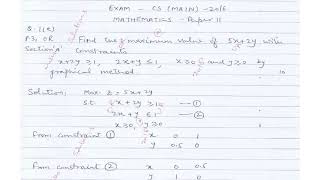 EXAM - CS (MAIN) - 2016
MATHEMATICS - Paper II
Q.1(e)
P3, OR Find the maximum value of 5x+2y with
Section 'A' constraints
x+2y ≥ 1, 2x+y ≤ 1, x ≥ 0 and y ≥ 0 by
graphical method 10
Solution, Max. Z = 5x+2y
S.t. x + 2y ≥ 1 ①
2x + y ≤ 1 ②
x ≥ 0, y ≥ 0
From constraint ① x 0 1
y 0.5 0
From constraint ② x 0 0.5
y 1 0